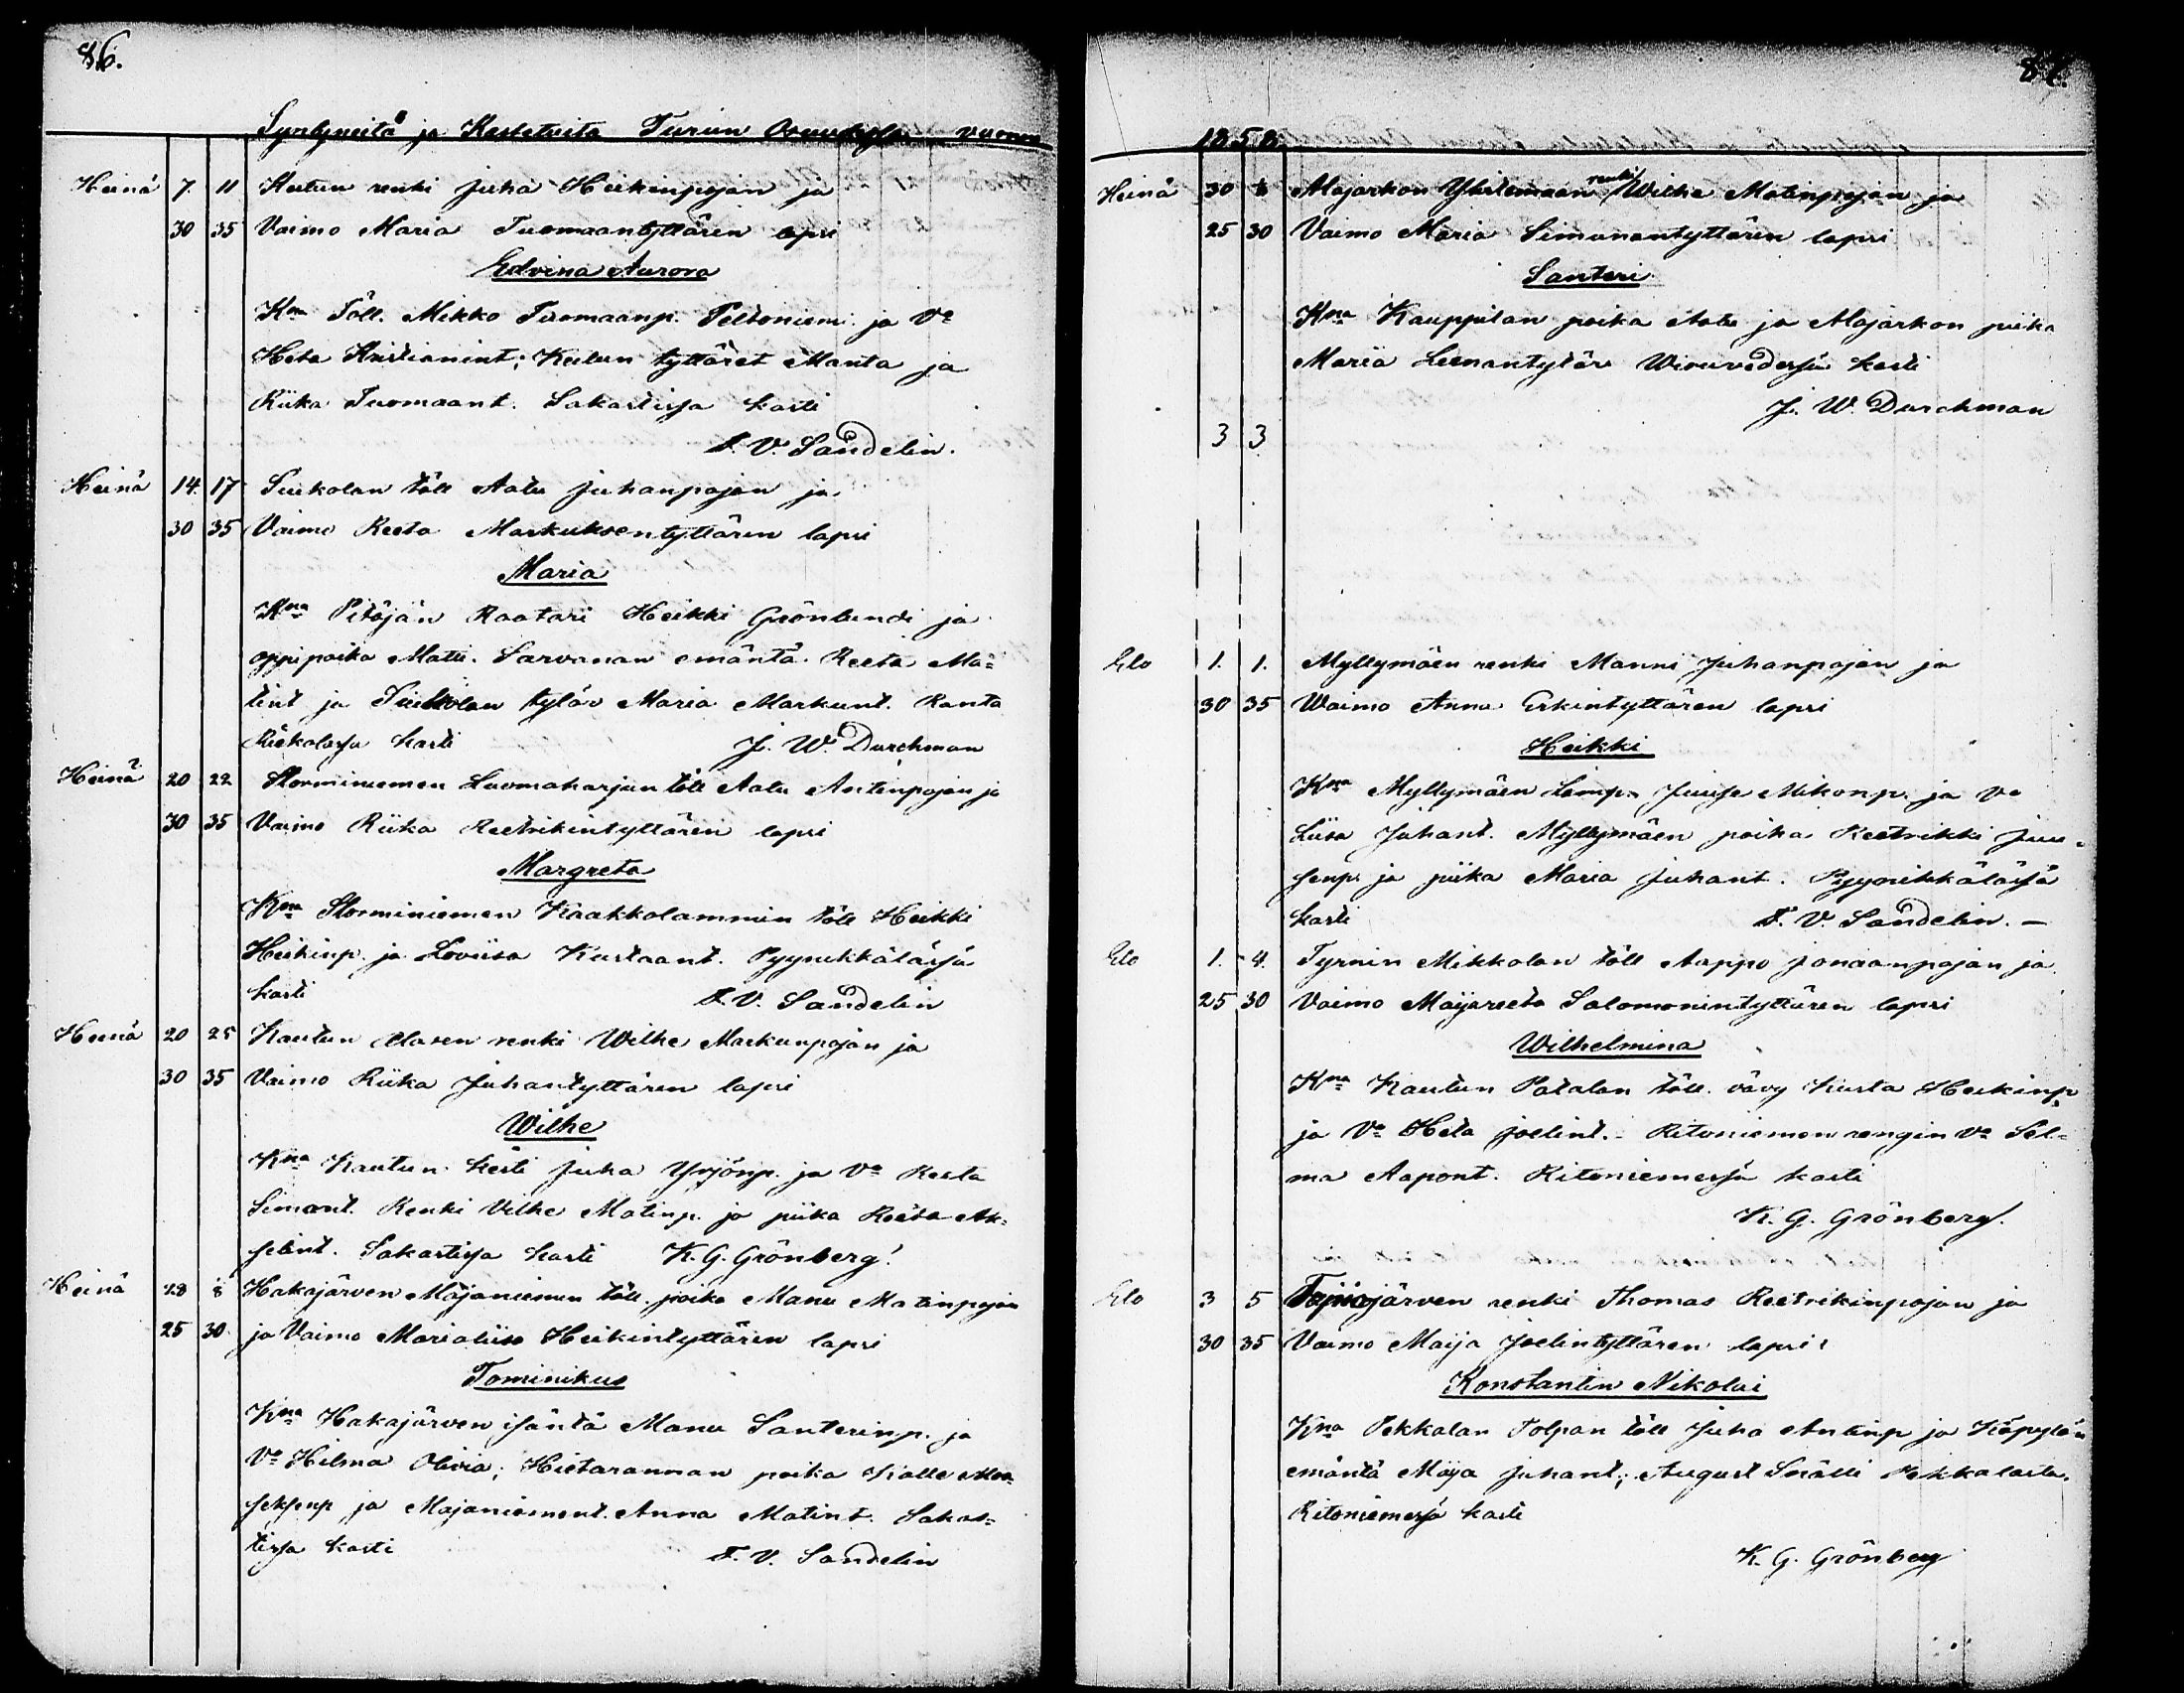 86.
Syntyneitä ja Kastetuita Turun vuonna
Heinä 7. 11 Kutun renki Juha Heikinpojan ja
30 35 Vaimo Maria Tuomaantyttären lapsi
Edvina Aurora
Kna Töll. Mikko Tuomaanp. Peltoniemi ja Va
Heta Kristianint; Kutun tyttäret Manta ja
Riika Tuomaant. Sakastissa kasti
F. V. Sandelin.
Heinä 14. 17 Suikolan töll Aatu Juhanpojan ja
30 35 Vaimo Reeta Markuksentyttären lapsi
Maria
Kna Pitäjän Raatari Heikki Grönlundi ja
oppipoika Matti. Sarvanan emäntä Reeta Ma=
tint ja Suikkolan tytär Maria Markunt. Ranta
Riekolassa kasti J. W. Durchman
Heinä 20 22 Storminiemen Luomaharjun töll Aatu Antinpojan ja
30 35 Vaimo Riika Reetrikintyttären lapsi
Margreta
Kna Storminiemen Kaakkolammin töll Heikki
Heikinp. ja Loviisa Kustaant. Pyynikkälässä
kasti F. V. Sandelin
Heinä 20 25 Kautun Clasen renki Wilhe Markunpojan ja
30 35 Vaimo Riika Juhantyttären lapsi
Wilhe
Kna Kautun kesti Juha Yrjönp. ja Va Reeta
Simont. Renki Vilhe Matinp. ja piika Reeta Ak=
selint. Sakastissa kasti K. G. Grönberg.
Heinä 28 8 Hakajärven Majaniemen töll. poika Manu Matinpojan
25 30 ja Vaimo Marialiisa Heikintyttären lapsi
Tominikus
Kna Hakajärven isäntä Manu Santerinp. ja
Va Hilma Olivia; Hietarannan poika Kalle
ja Majaniement. Anna Matint. Sakas=
tissa kasti F. V. Sandelin
87.
1858
Heinä 30 8 Majarkon Yhstemaan renki Wilhe Matinpojan ja
25 30 Vaimo Maria Simunantyttären lapsi
Santeri
Kna Kauppilan poika Aatu ja Majarkon piika
Maria Leenantytär Wirurvedessä kasti
J. W. Durchman
3 3
Elo 1. 1. Myllymäen renki Manni Juhanpojan ja
30 35 Waimo Anna Erkintyttären lapsi
Heikki
Kna Myllymäen Lamp. Juuse Mikonp. ja Va
Liisa Juhant. Myllymäen poika Reetrikki Juu=
senp. ja piika Maria Juhant. Pyynikkälässä
kasti F. V. Sandelin. —
Elo 1. 4. Tyrnin Mikkolan töll Aappo Jonaanpojan ja
25 30 Vaimo Maijareeta Salomonintyttären lapsi
Wilhelmina
Kna Kautun Patalan töll. vävy Kusta Heikinp.
ja Va Heta Joelint. Ritoniemen rengin Va Sel=
ma Aapont. Ritoniemessä kasti
K. G. Grönberg.
Elo 3 5 järven renki Thomas Reetrikinpojan ja
30 35 Vaimo Maija Joelintyttären lapsi
Konstantin Nikolai
Kna Pekkalan Tolpan töll Juha Antinp ja Käpylän
emäntä Maija Juhant; August Snälli Pekkalasta.
Ritoniemessä kasti
K. G. Grönberg